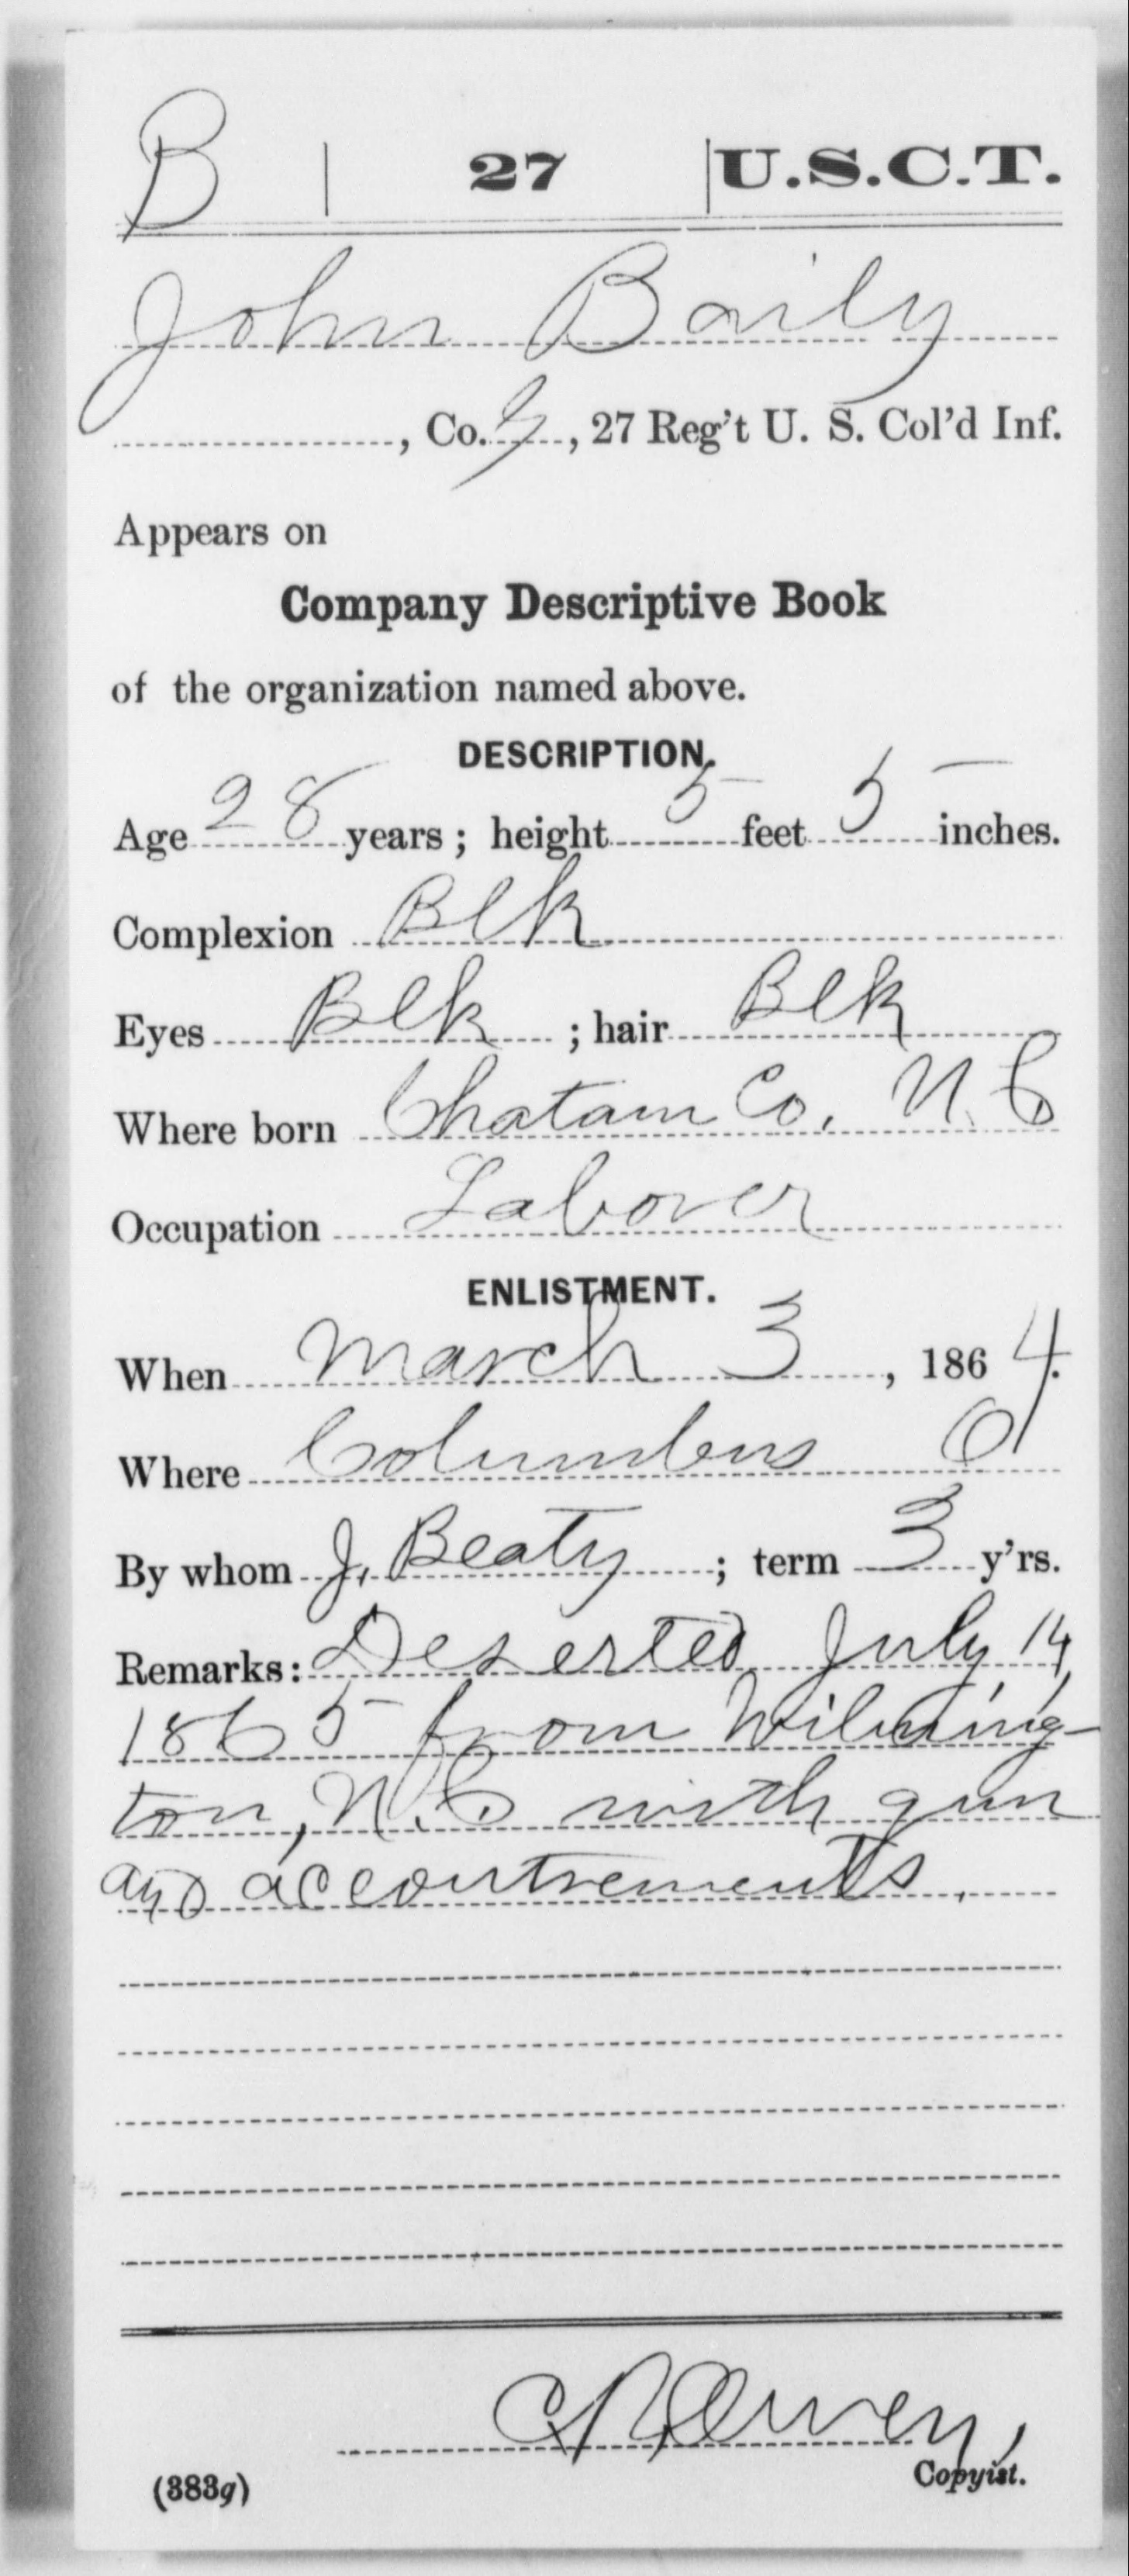 B | 27 | U.S.C.T.
John Baily
, Co. G, 27 Reg't U. S. Col'd Inf.
Appears on
Company Descriptive Book
of the organization named above.
DESCRIPTION.
Age 28 years; height 5 feet 5 inches.
Complexion Blk
Eyes Blk ; hair Blk
Where born Chatam Co, N. C
Occupation Laborer
ENLISTMENT.
When March 3, 1864.
Where Columbus O
By whom J. Beaty ; term 3 y'rs.
Remarks: Deserted July 14,
1865 from Wilming-
ton, N.C with gun
and accoutrements.
Owen,
Copyist.
(383g)